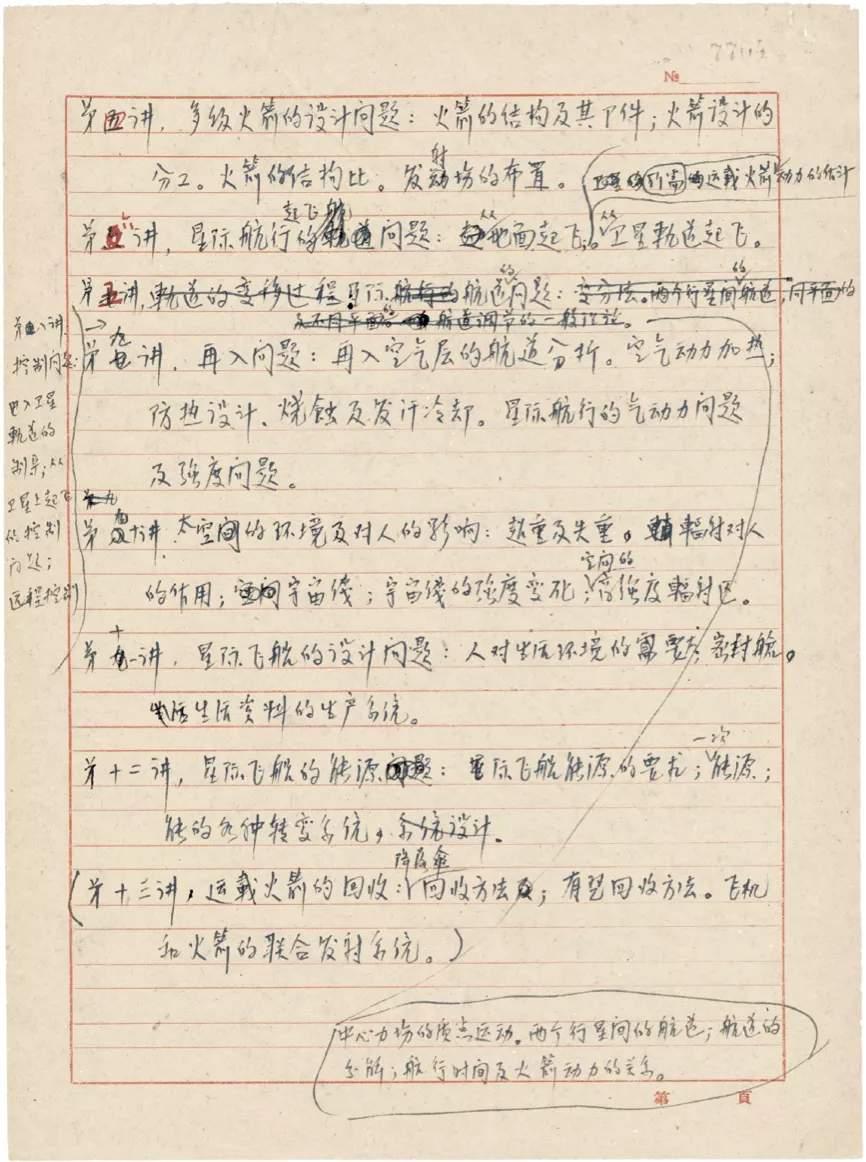 7701
№
第四讲，多级火箭的设计问题：火箭的结构及其下件；火箭设计的
分工。火箭的结构比。发射场的布置。
卫星的运载火箭动力的估计
第六讲，星际航行的起飞问题：从地面起飞。从卫星軌道起飞。
第五讲，軌道的变移过程 星际航行的航道的问题：变分法。两个行星间的航道，同平面的
及不同平面的 航道调节的一般理论。
第八讲
控制问题：
进入卫星
軌道的
制导；从
卫星上起飞
的控制
问题；
远程控制
第九讲，再入问题：再入空气层的航道分析。空气动力加热；
防热设计、烧蚀及发汗冷却。星际航行的气动力问题
及强度问题。
第九
第十讲 太空间的环境及对人的影响：超重及失重。辐射对人
的作用；宇宙线；宇宙线的强度变化；空间的高强度辐射区。
第十一讲，星际飞船的设计问题：人对生活环境的需要；密封舱。
生活资料的生产系统。
第十二讲，星际飞船的能源问题：星际飞船能源的要求；一次能源；
能的各种转变系统，系统设计。
（第十三讲，运载火箭的回收：降落伞回收方法；有翌回收方法。飞机
和火箭的联合发射系统。）
中心力场的质点运动。两个行星间的航道；航道的
分解；航行时间及火箭动力的关系。
第 頁